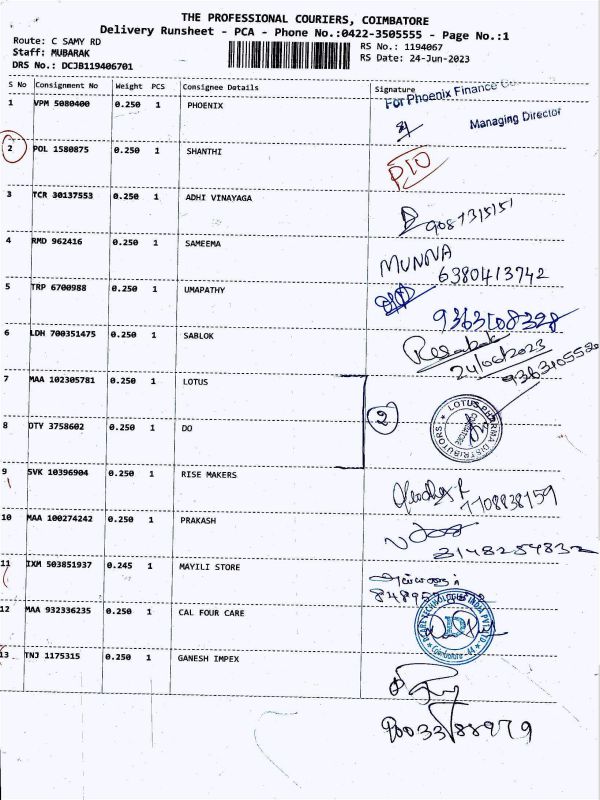 THE PROFESSIONAL COURIERS, COIMBATORE
Delivery Runsheet - PCA - Phone No.:0422-3505555 - Page No.:1
Route: C SAMY RD
Staff: MUBARAK
DRS No.: DCJB119406701
RS No.: 1194067
RS Date: 24-Jun-2023
S No Consignment No Weight PCS Consignee Details Signature
For Phoenix Finance Co
1 VPM 5080400 0.250 1 PHOENIX
Managing Director
2 POL 1580875 0.250 1 SHANTHI
3 TCR 30137553 0.250 1 ADHI VINAYAGA
4 RMD 962416 0.250 1 SAMEEMA
MUNNA
6380413742
5 TRP 6700988 0.250 1 UMAPATHY
9363108328
6 LDH 700351475 0.250 1 SABLOK
24/06/2023
7 MAA 102305781 0.250 1 LOTUS
2
LOTUS PHARMA DISTRIBUTORS
8 DTY 3758602 0.250 1 DO
9 SVK 10396904 0.250 1 RISE MAKERS
7708838159
10 MAA 100274242 0.250 1 PRAKASH
11 IXM 503851937 0.245 1 MAYILI STORE
12 MAA 932336235 0.250 1 CAL FOUR CARE
13 TNJ 1175315 0.250 1 GANESH IMPEX